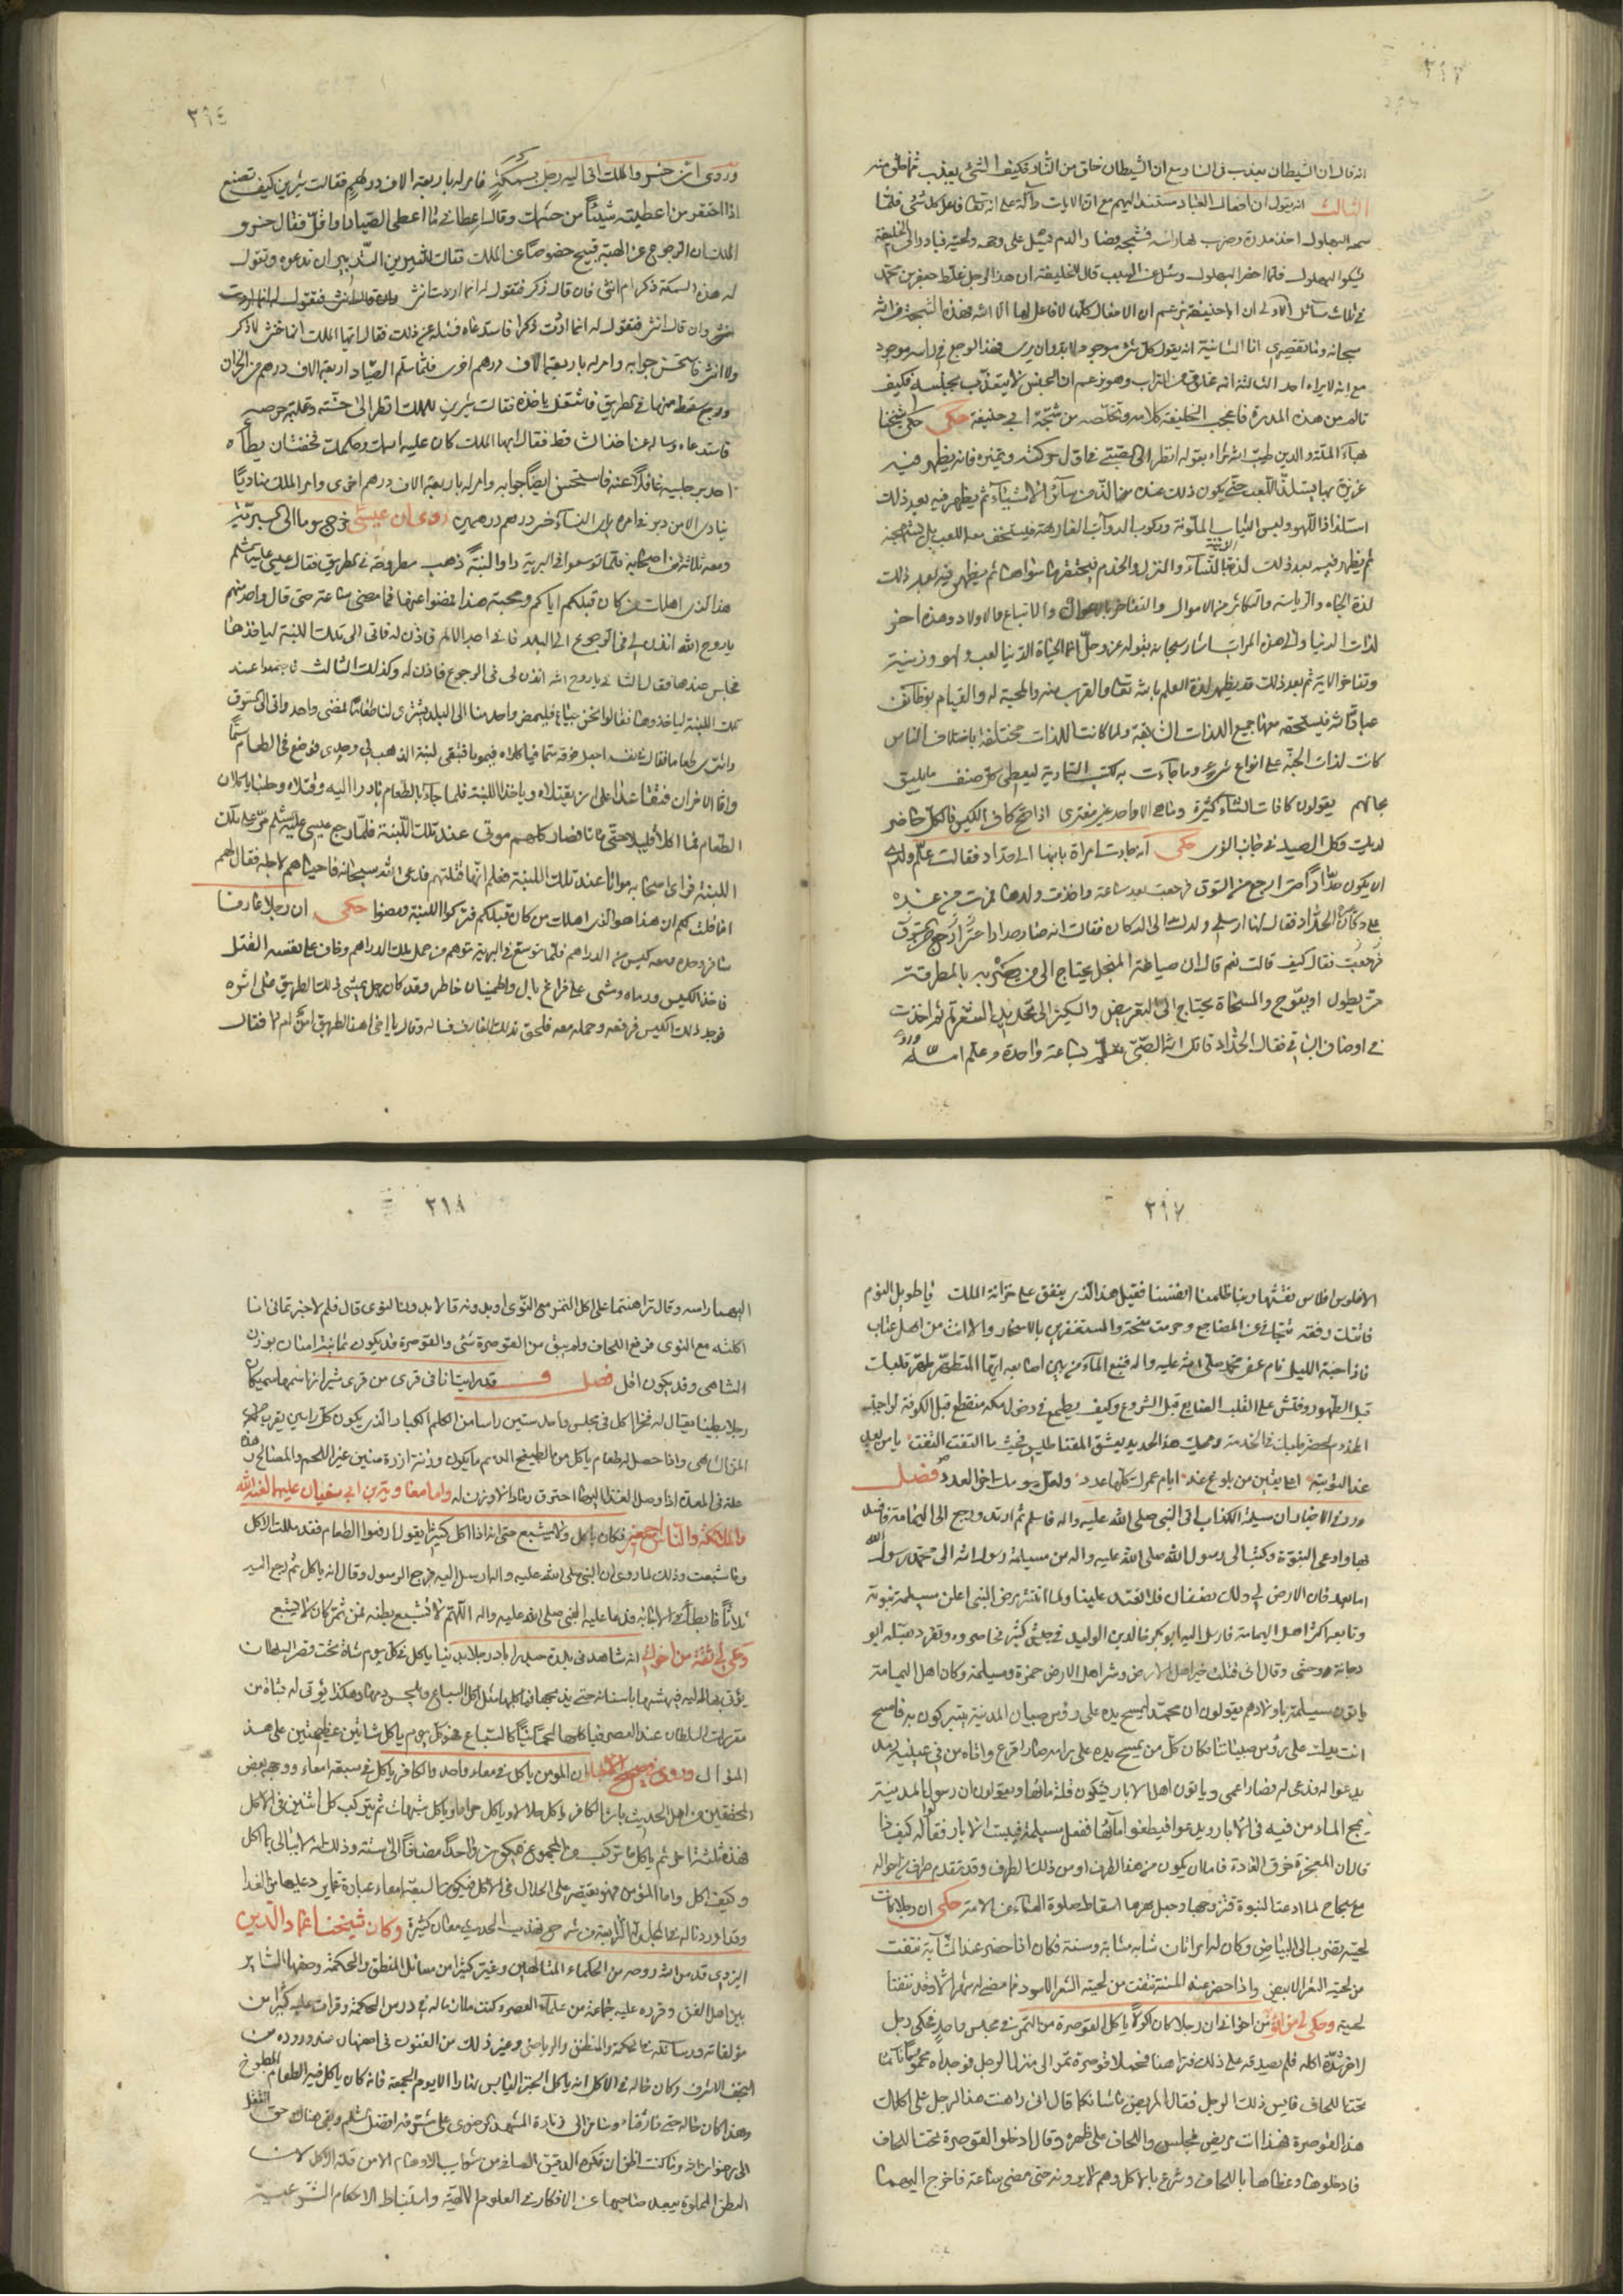 ٣٩٣
انه قال ان الشيطان يعذب فى النار مع ان الشيطان خلق من النار فكيف الشئ يعذب بما خلق منه
الثالث انه يقول ان افعال العباد مستند اليهم مع ان الايات دالة على انه تعالى فاعل كل شئ فلما
سمعه البهلول اخذ مدرة وضرب بها راسه فشجه وصار الدم يسيل على وجهه ولحيته فبادر الى الخليفة
يشكوا البهلول فلما احضر البهلول وسئل عن السبب قال للخليفة ان هذا الرجل غلط جعفر بن محمد
فى ثلاث مسائل الاولى ان ابا حنيفة يزعم ان الافعال كلها لا فاعل لها الا الله فهذه الشجة من الله
سبحانه وما تقصيرى انا الثانية انه يقول كل شئ موجود لا بد وان يرى فهذا الوجع فى راسه موجود
مع انه لا يراه احد الثالثة انه مخلوق من التراب وهو يزعم ان الجنس لا يتعذب بجنسه فكيف
تالم من هذه المدرة فاعجب الخليفة كلامه وتخلصه من شجة ابى حنيفة حكى حكى شيخنا
بهاء الملة والدين طيب الله ثراه بقوله انظر الى الصبى فى اول حركته وتميزه فانه يظهر فيه
غريزة بها يستلذ اللعب حتى يكون ذلك عنده الذ من سائر الاشياء ثم يظهر فيه بعد ذلك
استلذاذ اللهو ولبس الثياب الملونة وركوب الدواب الفارهة فيستخف معه اللعب بل يستهجنه
ثم يظهر فيه بعد ذلك لذة الزينة بالنساء والمنزل والخدم فيحتقر ما سواها ثم يظهر فيه بعد ذلك
لذة الجاه والرياسة والتكاثر من الاموال والتفاخر بالاعوان والاتباع والاولاد وهذه اخر
لذات الدنيا والى هذه المراتب اشار سبحانه بقوله عز وجل انما الحياة الدنيا لعب ولهو وزينة
وتفاخر الاية ثم بعد ذلك قد يظهر لذة العلم بالله تعالى والقرب منه والمحبة له والقيام بوظائف
عباداته فيستحقر معها جميع اللذات السابقة ولما كانت اللذات مختلفة باختلاف الناس
كانت لذات الجنة على انواع شتى وما جاءت به كتب السماوية ليعطى كل صنف ما يليق
بحالهم يقولون كافات الشتاء كثيرة وما هى الا واحد غير مفترى اذا صح كاف الكيس فالكل حاضر
لديك وكل الصيد فى جانب الفرا حكى انه جاءت امراة بابنها الى حداد فقالت علم ولدى
ان يكون حدادا حتى ارجع من السوق فرجعت بعد ساعة واخذت ولدها فمرت من عنده
على دكان الحداد فقال لها ارسلى ولدك الى الدكان فقالت انه صار حدادا
فرجعت فقال كيف قالت نعم قال ان صياغة المنجل يحتاج الى من يضربه بالمطرقة
حتى يطول او يعوج والمسحاة يحتاج الى التعريض والسكين الى تحديد
فى اوصاف الباقى فقال الحداد قاتل الله الصبى تعلم بساعة واحدة وعلم امه
٣٩٤
وروى ان خسرو الملك اتى اليه رجل بسمكة فامر له باربعة الاف درهم فقالت شيرين كيف تصنع
اذا احتقر من اعطيته شيئا من حشمك وقال اعطانى ما اعطى الصياد او اقل فقال خسرو
الملك ان الرجوع عن الهبة قبيح خصوصا عن الملك فقالت شيرين التدبير ان تدعوه وتقول
له هذه السمكة ذكر ام انثى فان قال ذكر فتقول له انما اردت انثى
وان قال انثى فتقول له انما اردت ذكرا فاستدعاه فسئله عن ذلك فقال ايها الملك انها خنثى لا ذكر
ولا انثى فاستحسن جوابه وامر له باربعة الاف درهم اخرى فلما تسلم الصياد اربعة الاف درهم من الخزان
ورجع سقط منها فى الطريق فاشتغل باخذه فقالت شيرين للملك انظر الى خسته وغلبة حرصه
فاستدعاه وساله عن اخذ الساقط فقال ايها الملك كان عليه اسمك وحكمك فخفت ان يطأه
احد برجليه غافلا عنه فاستحسن ايضا جوابه وامر له باربعة الاف درهم اخرى وامر الملك مناديا
ينادى الا من دبر فى امره براى النساء خسر درهم درهمين روى ان عيسى خرج يوما الى البرية
ومعه ثلاثة من اصحابه فلما توسعوا فى البرية راوا لبنة ذهب مطروحة فى الطريق فقال عيسى عليه السلم
هذا الذى اهلك من كان قبلكم اياكم ومحبة هذا فمضوا عنها فما مضى ساعة حتى قال واحد منهم
يا روح الله ائذن لى فى الرجوع الى البلد فانى اجد الالم فاذن له فاتى الى تلك اللبنة لياخذها
فجلس عندها وقال الثانى يا روح الله ائذن لى فى الرجوع فاذن له وكذلك الثالث فاجتمعوا عند
تلك اللبنة لياخذوها فقالوا نحن جياع فليمض واحد منا الى البلد يشترى لنا طعاما فمضى واحد واتى الى السوق
واشترى طعاما فقال فى نفسه اجعل فيه سما فياكلاه فيموتا فتبقى لبنة الذهب لى وحدى فوضع فى الطعام سما
واما الاخران فتعاقدا على ان يقتلاه وياخذا اللبنة فلما جاء بالطعام بادرا اليه وقتلاه وجلسا ياكلان
الطعام فما اكلا قليلا حتى ماتا فصار كلهم موتى عند تلك اللبنة فلما رجع عيسى عليه السلم مر على تلك
اللبنة فراى اصحابه امواتا عند تلك اللبنة فعلم انها قتلتهم فدعى الله سبحانه فاحياهم لاجله فقال لهم
اما قلت لكم ان هذا هو الذى اهلك من كان قبلكم فتركوا اللبنة ومضوا حكى ان رجلا عارفا
سافر وحده ومعه كيس من الدراهم فلما توسع فى البرية توهم من حمل تلك الدراهم وخاف على نفسه القتل
فاخذ الكيس ورماه ومشى على فراغ بال واطمينان خاطر وقد كان رجل يمشى ذلك الطريق على اثره
فوجد ذلك الكيس فرفعه وحمله معه فلحق بذلك العارف فساله وقال يا اخى هذا الطريق امن ام لا فقال
٣٩٧
الافلوس افلاس نقشتها وربنا ظلمنا انفسنا فقيل هذا الذى ينفق على خزانة الملك فيا طويل النوم
فاتتك رفقة تتجافى عن المضاجع وحرمت منحة والمستغفرين بالاسحار والا انت من اهل عتاب
فاذا جنه الليل نام عنى محمد صلى الله عليه واله فنبع الماء من بين اصابعه ايها المتطهر طهر قلبك
قبل الطهور وفتش على القلب الضايع قبل الشروع وكيف يطمع فى دخول مكة منقطع قبل الكوفة
عند التوبة اما يقين من بلوغ عنده ايام عمرك كلها عدد ولعل يومك اخر العدد فصل
ورد فى الاخبار ان مسيلمة الكذاب اتى النبى صلى الله عليه واله فاسلم ثم ارتد ورجع الى اليمامة
بها وادعى النبوة وكتب الى رسول الله صلى الله عليه واله من مسيلمة رسول الله الى محمد رسول الله
اما بعد فان الارض لى ولك نصفان فلا تعتد علينا ولما اشتد مرض النبى اعلن مسيلمة بنبوته
وتابعه اكثر اهل اليمامة فارسل اليه ابو بكر خالد بن الوليد فى جيش كثير فحاصروه وتفرد بقتله ابو
دجانة ووحشى وقال انى قتلت خير اهل الارض وشر اهل الارض حمزة ومسيلمة وكان اهل اليمامة
ياتون مسيلمة باولادهم يقولون ان محمدا يمسح يده على رؤس صبيان المدينة يتبركون به فامسح
انت يدك على رؤس صبياننا فكان كل من يمسح يده على راسه صار اقرع واتاه من فى عينيه رمد
يدعوا له فدعى له فصار اعمى وياتون اهل الابار يشكون قلة مائها ويقولون ان رسول المدينة
يمج الماء من فيه فى الابار ويدعوا فيطفوا ماؤها ففعل مسيلمة فيبست الابار فقالوا له كيف هذا
قال ان المعجزة خرق العادة فاما ان يكون من هذا الطرف او من ذلك الطرف وقد تقدم طرف من احواله
مع سجاح لما ادعت النبوة فتزوجها وجعل مهرها اسقاط صلوة العشاء عن الامة حكى ان رجلا كانت
لحيته تضرب الى البياض وكان له امراتان شابة ومسنة فكان اذا حضر عند الشابة نتفت
من لحيته الشعر الابيض واذا حضر عند المسنة نتفت من لحيته الشعر الاسود فما مضى له شهر الا وقد نتفتا
لحيته وحكى لى من اثق من اخوانى ان رجلا كان اكولا ياكل القوصرة من التمر فى مجلس واحد فحكى رجل
لاخر شدة اكله فلم يصدقه على ذلك فتراهنا فحملا قوصرة تمر الى منزل الرجل فوجداه محموما نائما
تحت اللحاف فايس ذلك الرجل فقال المريض ما شانكما قال انى راهنت هذا الرجل على اكلك
هذا القوصرة فهذا انت مريض فجلس واللحاف على ظهره وقال ادخلوا القوصرة تحت اللحاف
فادخلوها وغطاها باللحاف وشرع بالاكل وهم لا يرونه حتى مضى ساعة فاخرج اليهما
٣٩٨
اليهما راسه وقال تراهنتما على اكل التمر مع النوى او بدونه قالا بل بدون النوى قال فلم لا خبرتمانى انا
اكلته مع النوى فرفع اللحاف ولم يبق من القوصرة شئ والقوصرة قد يكون ثمانية امنان بوزن
الشاهى وقد يكون اقل فصل قد راينا فى قرى من قرى شيراز
رجلا بطينا يقال له فخر اكل فى مجلس واحد ستين راسا من الكلم الكبار الذى يكون كل راس
المن الشاهى واذا حصل له طعام ياكل من الطبيخ الدسم ما يكون وزنه ازيد من منين غير اللحم والمصالح
علة فى المعدة اذا وصل الغذا اليها احترق رمادا لا وزن له واما معاوية بن ابى سفيان عليهما لعنة الله
والملائكة والناس اجمعين فكان ياكل ولا يشبع حتى انه اذا اكل كثيرا يقول ارفعوا الطعام فقد مللت الاكل
وما شبعت وذلك لما روى ان النبى صلى الله عليه واله ارسل اليه فرجع الرسول وقال انه ياكل ثم رجع اليه
ثلاثا فابطأ فى الاجابة فدعا عليه النبى صلى الله عليه واله اللهم لا تشبع بطنه فمن ثم كان لا يشبع
وحكى لى ثقة من اخوانى انه شاهد فى بلدة حيدراباد رجلا بدينا ياكل فى كل يوم شاة تحت قصر السلطان
يؤتى بها اليه فينهشها باسنانه حتى يذبحها فياكلها مثل اكل السباع
مقربات السلطان عند العصر فياكلها لحما نيا كالسباع فهو كل يوم ياكل شاتين عظيمتين على هذ
المنوال وروى فى صحيح الاخبار ان المؤمن ياكل فى معاء واحد والكافر ياكل فى سبعة امعاء ووجه بعض
المحققين من اهل الحديث بان الكافر ياكل حلالا وياكل حراما وياكل شبهات ثم يتركب كل اثنين فى الاكل
فهذه ثلثة اخر ثم ياكل ما تركب من المجموع فيكون واحدا مضافا الى ستة وذلك انه لا يبالى بما اكل
وكيف اكل واما المؤمن فهو يقتصر على الحلال فى الاكل فيكون السبعة امعاء عبارة عما يرد عليها من الغذا
وقد اوردنا له فى المجلد الرابع من شرح تهذيب الحديث معان كثيرة وكان شيخنا عماد الدين
اليزدى قدس الله روحه من الحكماء المتالهين وغير كثيرا من مسائل المنطق والحكمة وحققها
بين اهل الفن وقرره عليه جماعة من علماء العصر وكنت ملازما له فى درس الحكمة وقرات عليه كثيرا من
مؤلفاته ورسائله فى الحكمة والمنطق والرياضى وغير ذلك من الفنون فى اصفهان
النجف الاشرف وكان حاله فى الاكل انه ياكل الخبز اليابس نهارا الا يوم الجمعة فانه كان ياكل فيه الطعام المطبوخ
وهذا كان حاله حتى فارقناه وسافر الى زيارة المشهد الرضوى على مشرفه افضل السلم وبقى هناك حتى انتقل
الى رضوان الله وما كنت اظن ان فكره الدقيق الصافى من شوايب الاوهام الا من قلة الاكل لان
البطن المملوة يبعد صاحبها عن الافكار فى العلوم الالهية واستنباط الاحكام الشرعية